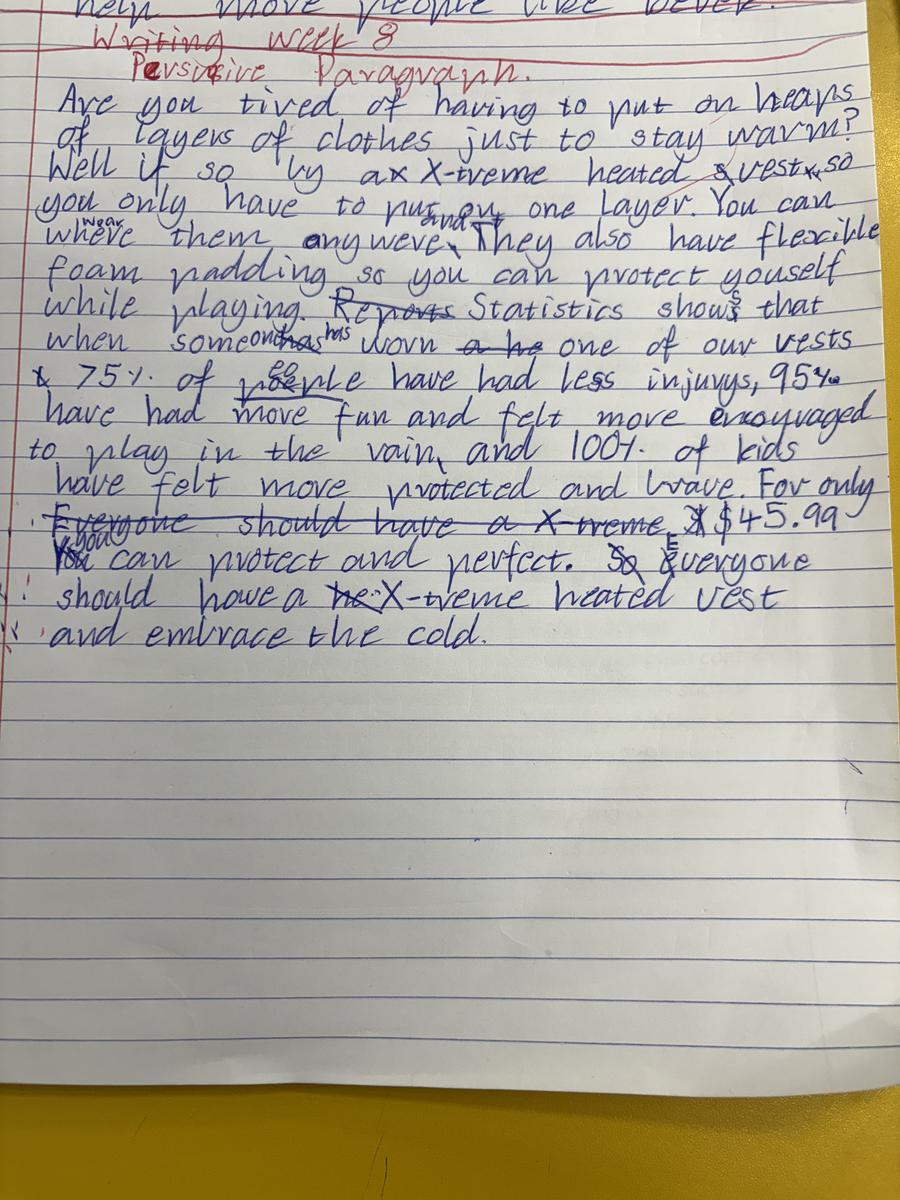 help more people like bever.
Writing week 8
Persucive Paragraph.
Are you tired of having to put on heaps
of layers of clothes just to stay warm?
Well if so by a X-treme heated vest so
you only have to put on one Layer. You can
wear them anywere and They also have flexcible
foam padding so you can protect youself
while playing. Reports Statistics shows that
when someone has worn a he one of our vests
75% of people have had less injurys, 95%
have had more fun and felt more encouraged
to play in the rain, and 100% of kids
have felt more protected and brave. For only
Everyone should have a X-treme $45.99
you can protect and perfect. So Everyone
should have a he X-treme heated vest
and embrace the cold.